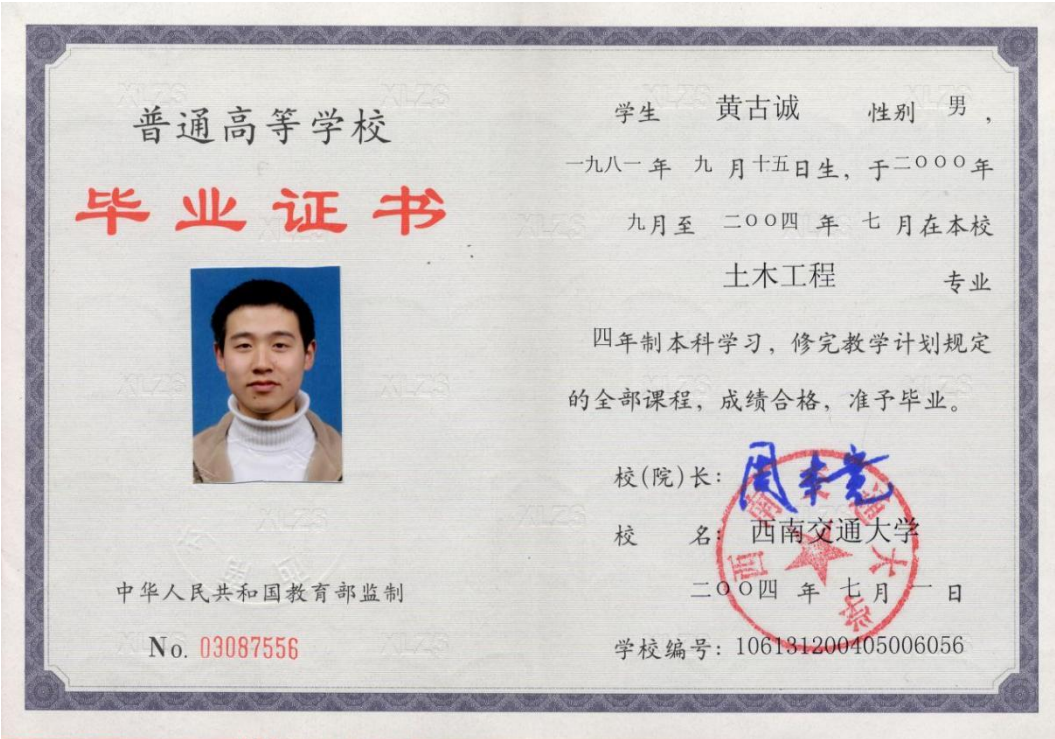 普通高等学校
毕业证书
中华人民共和国教育部监制
No. 03087556
学生 黄古诚 性别 男，
一九八一年 九 月十五日生，于二〇〇〇年
九月至 二〇〇四 年 七 月在本校
土木工程 专业
四年制本科学习，修完教学计划规定
的全部课程，成绩合格，准予毕业。
校(院)长：周本宽
校 名：西南交通大学
西南交通大学
二〇〇四 年 七月 一 日
学校编号：106131200405006056
XLZS